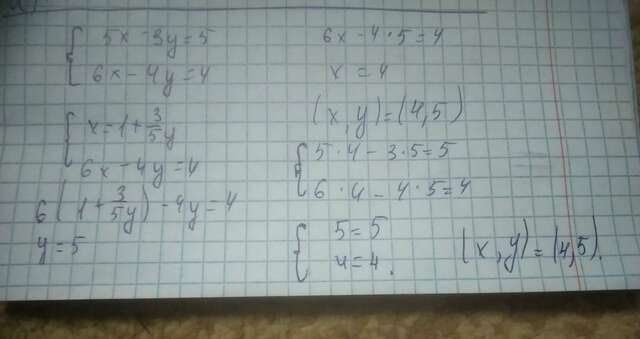 5x - 3y = 5
6x - 4y = 4
x = 1 + 3/5 y
6x - 4y = 4
6(1 + 3/5y) - 4y = 4
y = 5
6x - 4·5 = 4
x = 4
(x, y) = (4, 5)
5·4 - 3·5 = 5
6·4 - 4·5 = 4
5 = 5
4 = 4.
(x, y) = (4, 5).